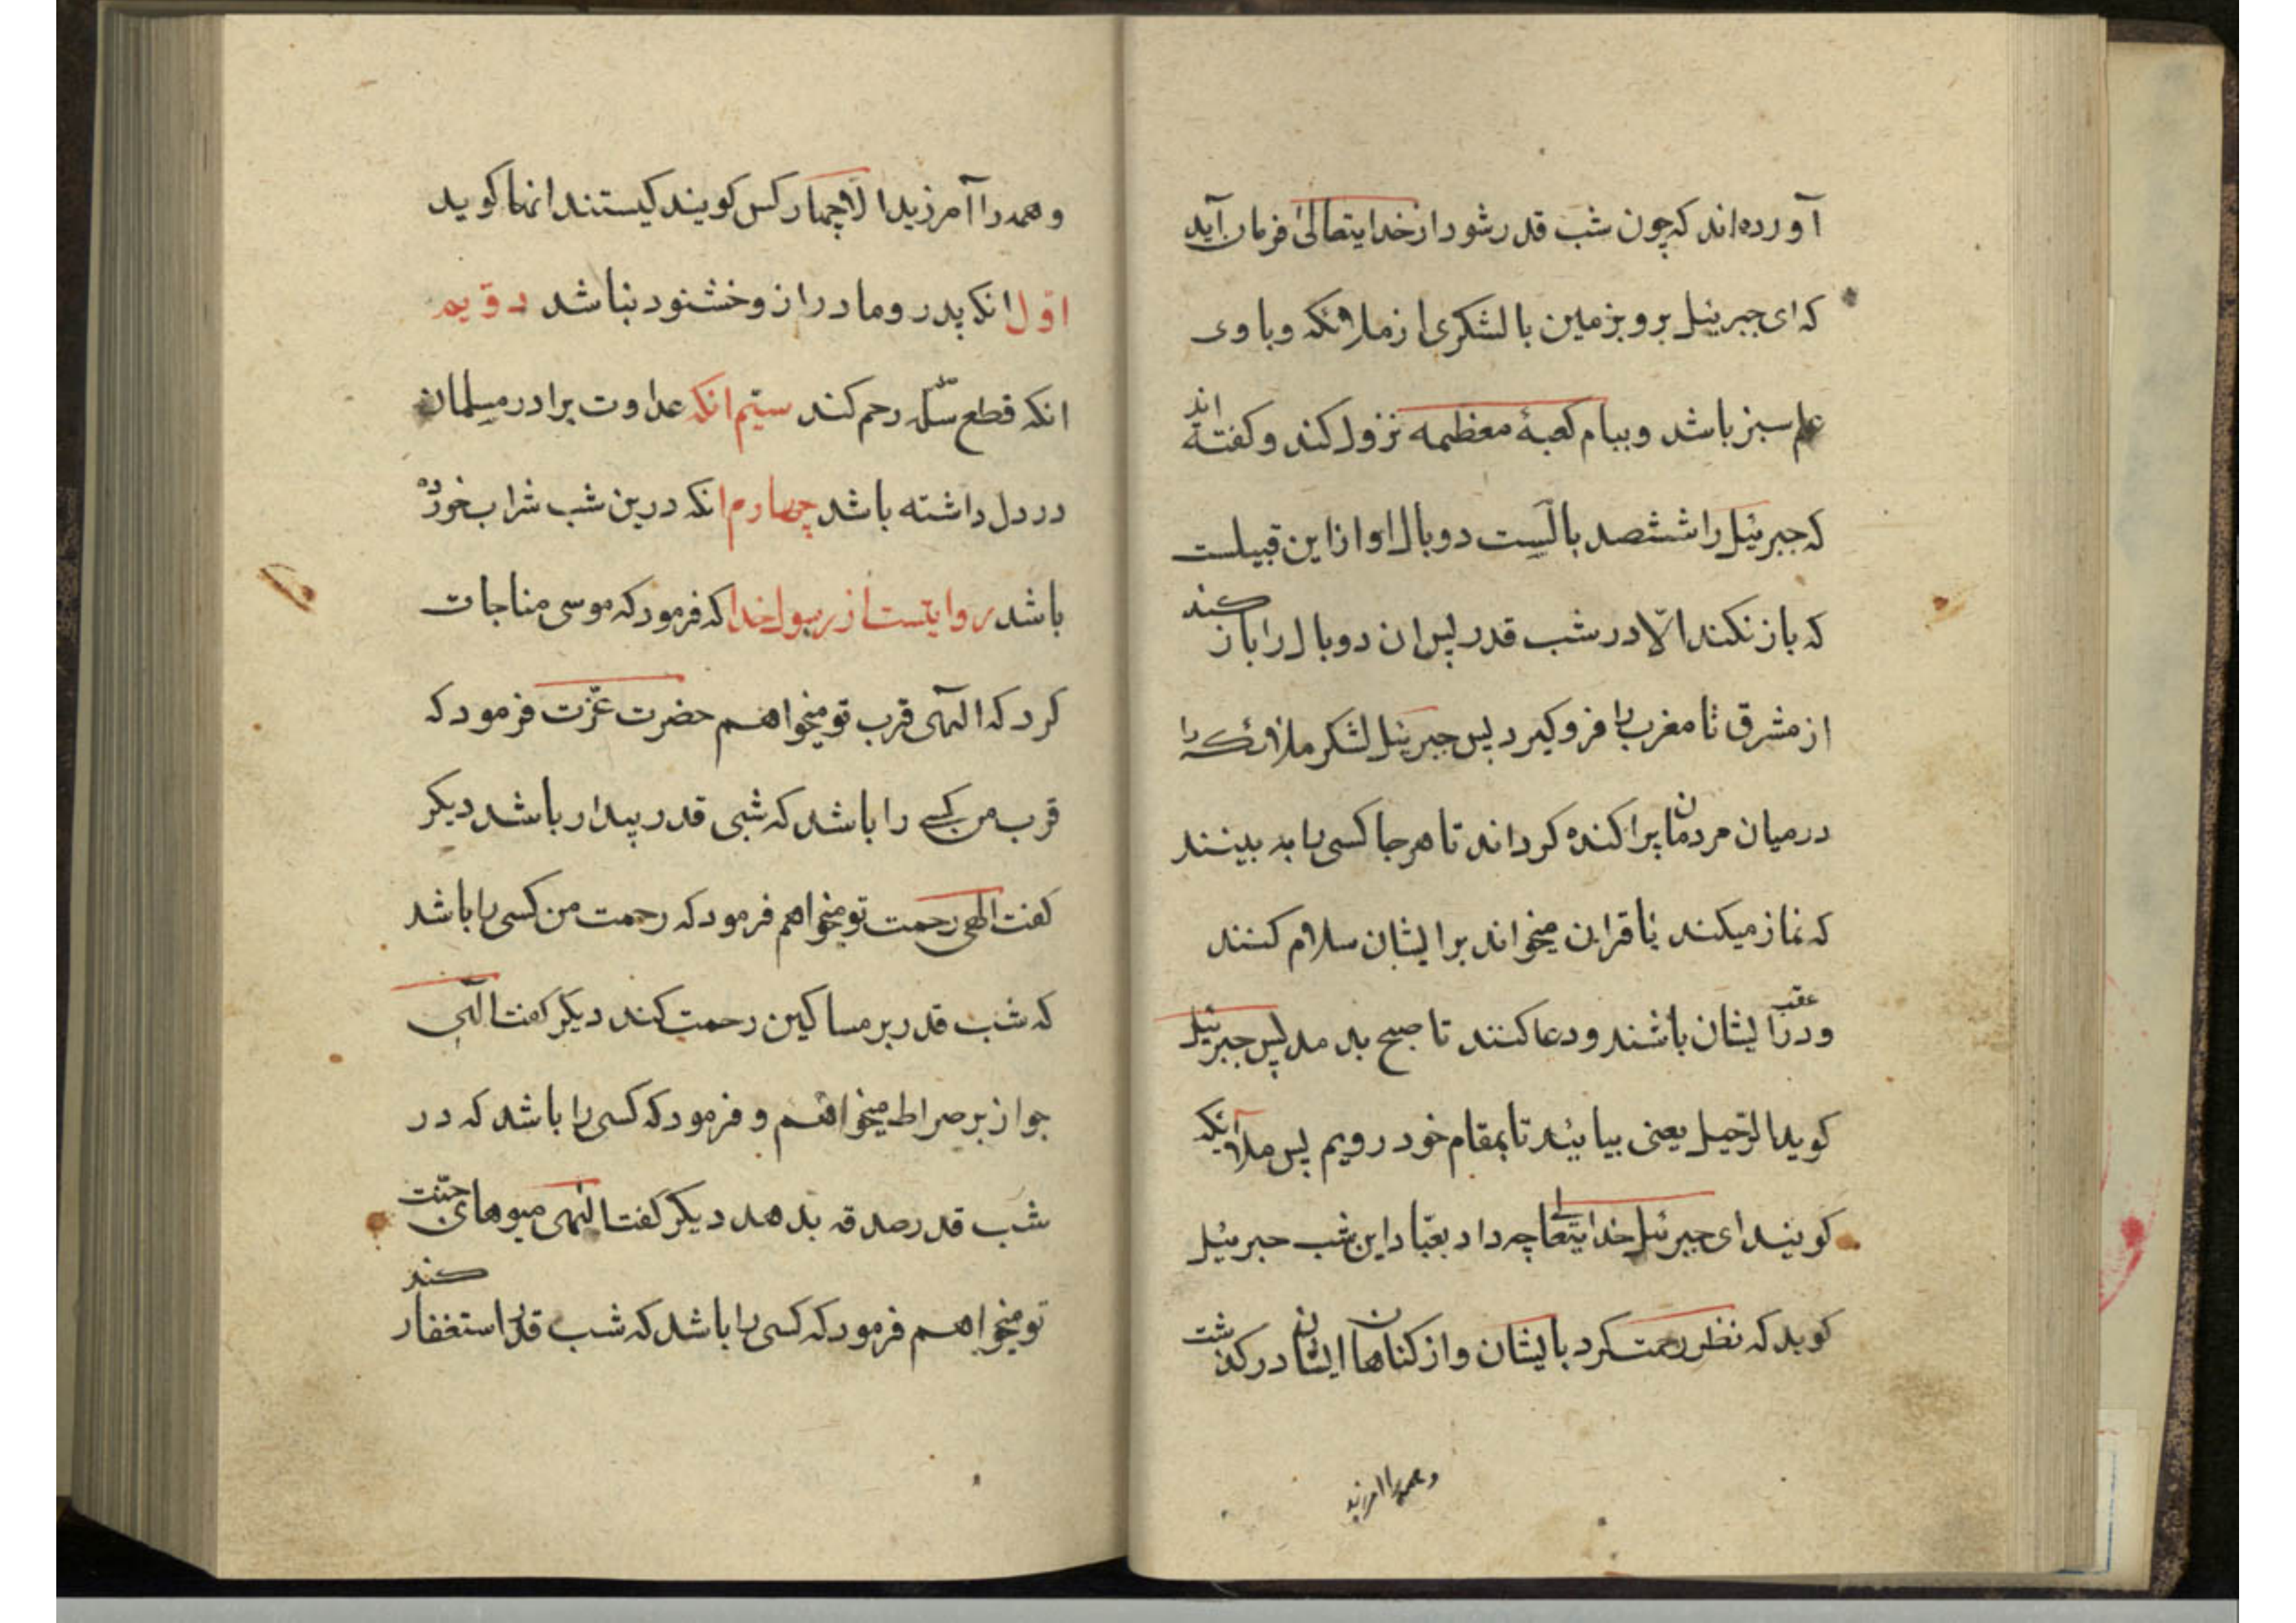 آورده‌اند که چون شب قدر شود از خدایتعالیٰ فرمان آید
که ای جبرییل برو بزمین با لشکری از ملائکه و با وی
علم سبز باشد و ببام کعبهٔ معظمه نزول کند و کفته اند
که جبرئیل را ششصد بالست دو بال او از این قبیلست
که باز نکند الّا در شب قدر پس ان دو بال را باز کند
از مشرق تا مغرب را فرو کیرد پس جبرییل لشکر ملائکه را
در میان مردمان پراکنده کرداند تا هر جا کسی را به بینند
که نماز میکند یا قران میخواند بر ایشان سلام کنند
و در عقب ایشان باشند و دعا کنند تا صبح بدمد پس جبرئیل
کوید الرّحیل یعنی بیایید تا بمقام خود رویم پس ملائکه
کویند ای جبرئیل خدایتعالی چه داد بعبّاد این شب جبرئیل
کوید که نظر رحمت کرد بایشان و از کناهان ایشان در کذشت
و همه را امرزید
و همه را آمرزید الّا چهار کس کویند کیستند انها کوید
اوّل انکه پدر و مادر از و خشنود نباشد دوّیم
انکه قطع صلّه رحم کند سیّم انکه عداوت برادر مسلمان
در دل داشته باشد چهارم انکه درین شب شراب خورده
باشد روایتست از رسول خدا که فرمود که موسی مناجات
کرد که الهی قرب تو میخواهم حضرت عزّت فرمود که
قرب من کسی را باشد که شبی قدر بیدار باشد دیکر
کفت الهی رحمت تو میخواهم فرمود که رحمت من کسی را باشد
که شب قدر بر مساکین رحمت کند دیکر کفت الهی
جواز بر صراط میخواهم و فرمود که کسی را باشد که در
شب قدر صدقه بدهد دیکر کفت الهی میوهای جنّت
تو میخواهم فرمود که کسی را باشد که شب قدر استغفار کند